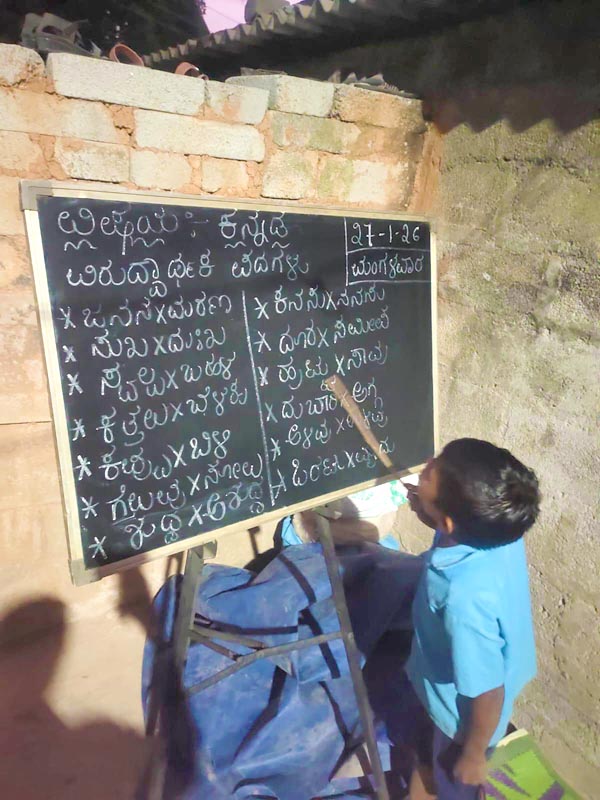 ವಿಷಯ :- ಕನ್ನಡ
27-1-26
ಮಂಗಳವಾರ
ವಿರುದ್ಧಾರ್ಥಕ ಪದಗಳು
* ಜನನ x ಮರಣ
* ಸುಖ x ದುಃಖ
* ಸ್ವಲ್ಪ x ಬಹಳ
* ಕತ್ತಲು x ಬೆಳಕು
* ಕಪ್ಪು x ಬಿಳಿ
* ಗೆಲುವು x ಸೋಲು
* ಶುದ್ಧ x ಅಶುದ್ಧ
* ಕನಸು x ನನಸು
* ದೂರ x ಸಮೀಪ
* ಹುಟ್ಟು x ಸಾವು
* ದುಬಾರಿ x ಅಗ್ಗ
* ಅಳಿವು x
* ಹಿರಿಯ x